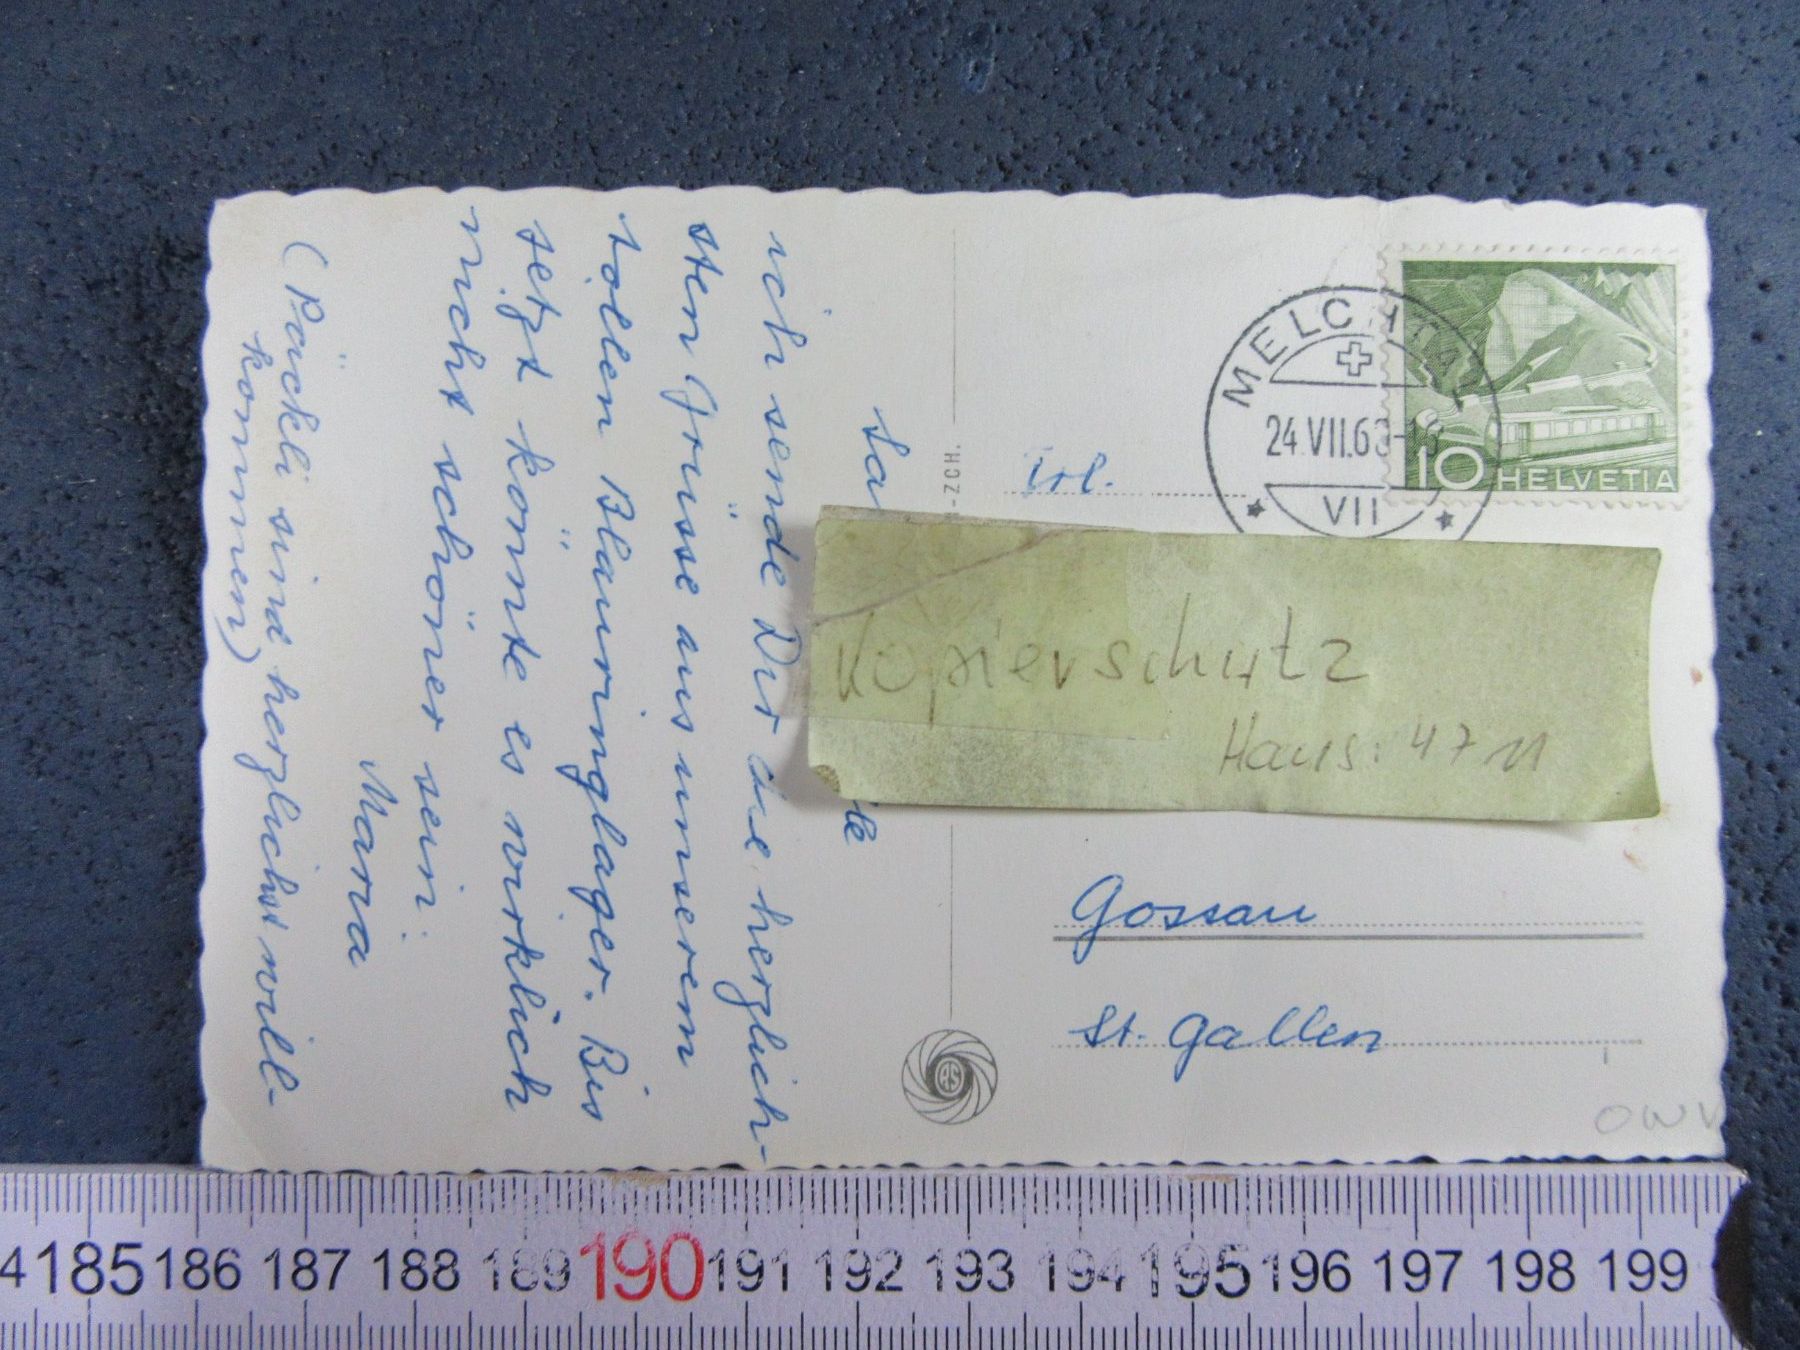 ich sende Dir die herzlich-
sten Grüsse aus unserem
tollen Blauringlager. Bis
jetzt könnte es wirklich
nicht schöner sein.
Maria
(Päckli sind herzlichst will-
kommen)
-ZCH.
Frl.
MELCHTAL
24.VII.63-18
VII
10 HELVETIA
Kopierschutz
Haus: 4711
Gossau
St. Gallen
OWV
185 186 187 188 189 190 191 192 193 194 195 196 197 198 199